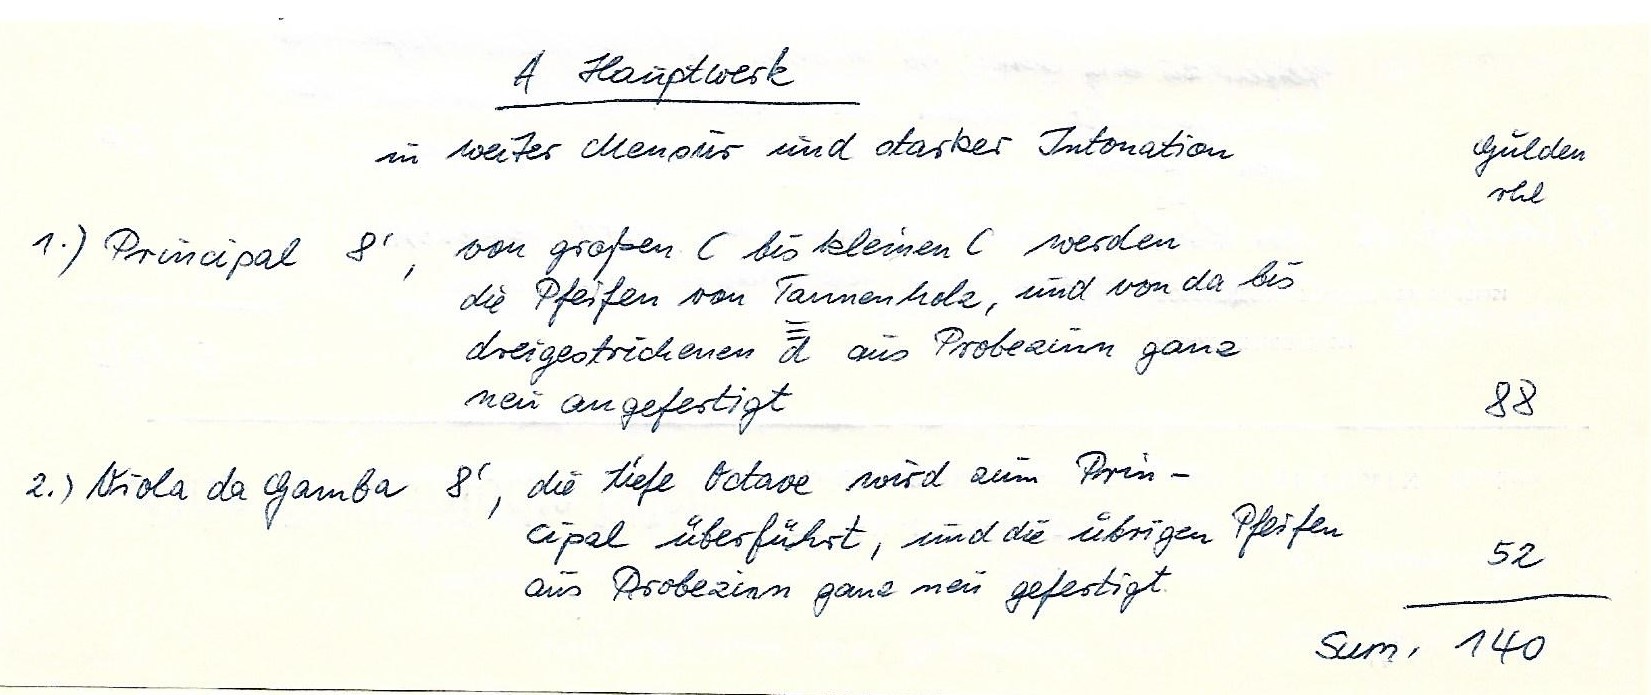 A Hauptwerk
in weiter Mensur und starker Intonation Gulden
rhl
1.) Principal 8', von großen C bis kleinen C werden
die Pfeifen von Tannenholz, und von da bis
dreigestrichenen d̿ aus Probezinn ganz
neu angefertigt 88
2.) Viola da Gamba 8', die tiefe Octave wird zum Prin-
cipal überführt, und die übrigen Pfeifen 52
aus Probezinn ganz neu gefertigt
Sum. 140